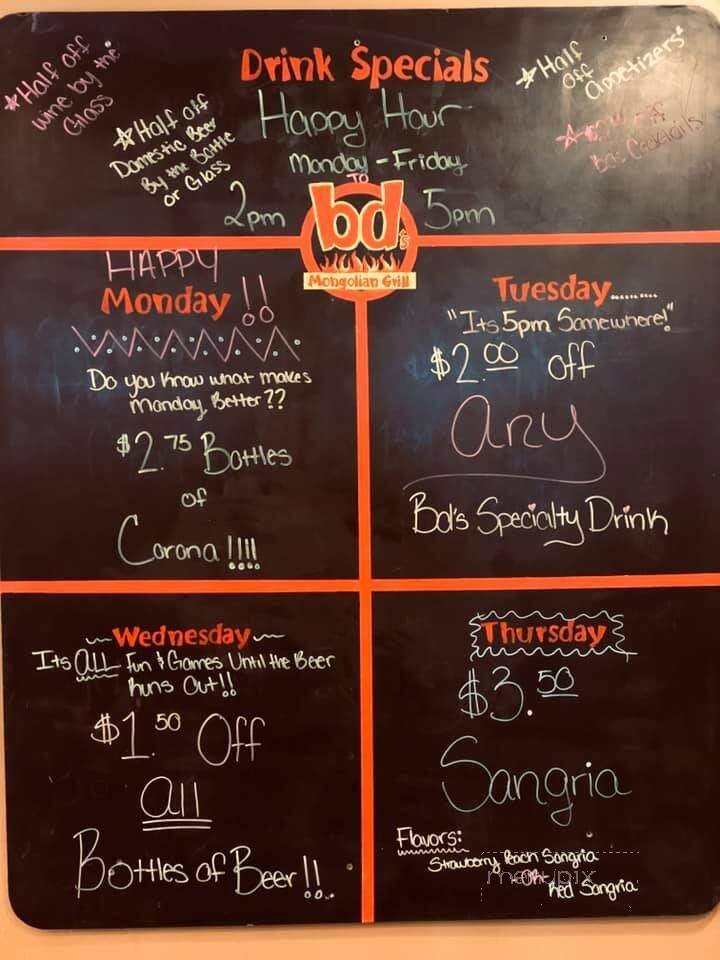 Drink Specials
Happy Hour
Monday - Friday
2pm TO 5pm
☆ Half off
wine by the
Glass
☆ Half off
Domestic Beer
By the Bottle
or Glass
☆ Half
off
appetizers*
off
Bd's Cocktails
bd's
Mongolian Grill
HAPPY
Monday!!
Do you know what makes
Monday, Better??
$2.75 Bottles
of
Corona!!!!
Tuesday.........
"Its 5pm Somewhere!"
$2.00 off
any
Bd's Specialty Drink
Wednesday
Its all Fun & Games Until the Beer
Runs Out!!
$1.50 Off
all
Bottles of Beer!!
Thursday
$3.50
Sangria
Flavors:
Strawberry Peach Sangria
OR
Red Sangria
menupix